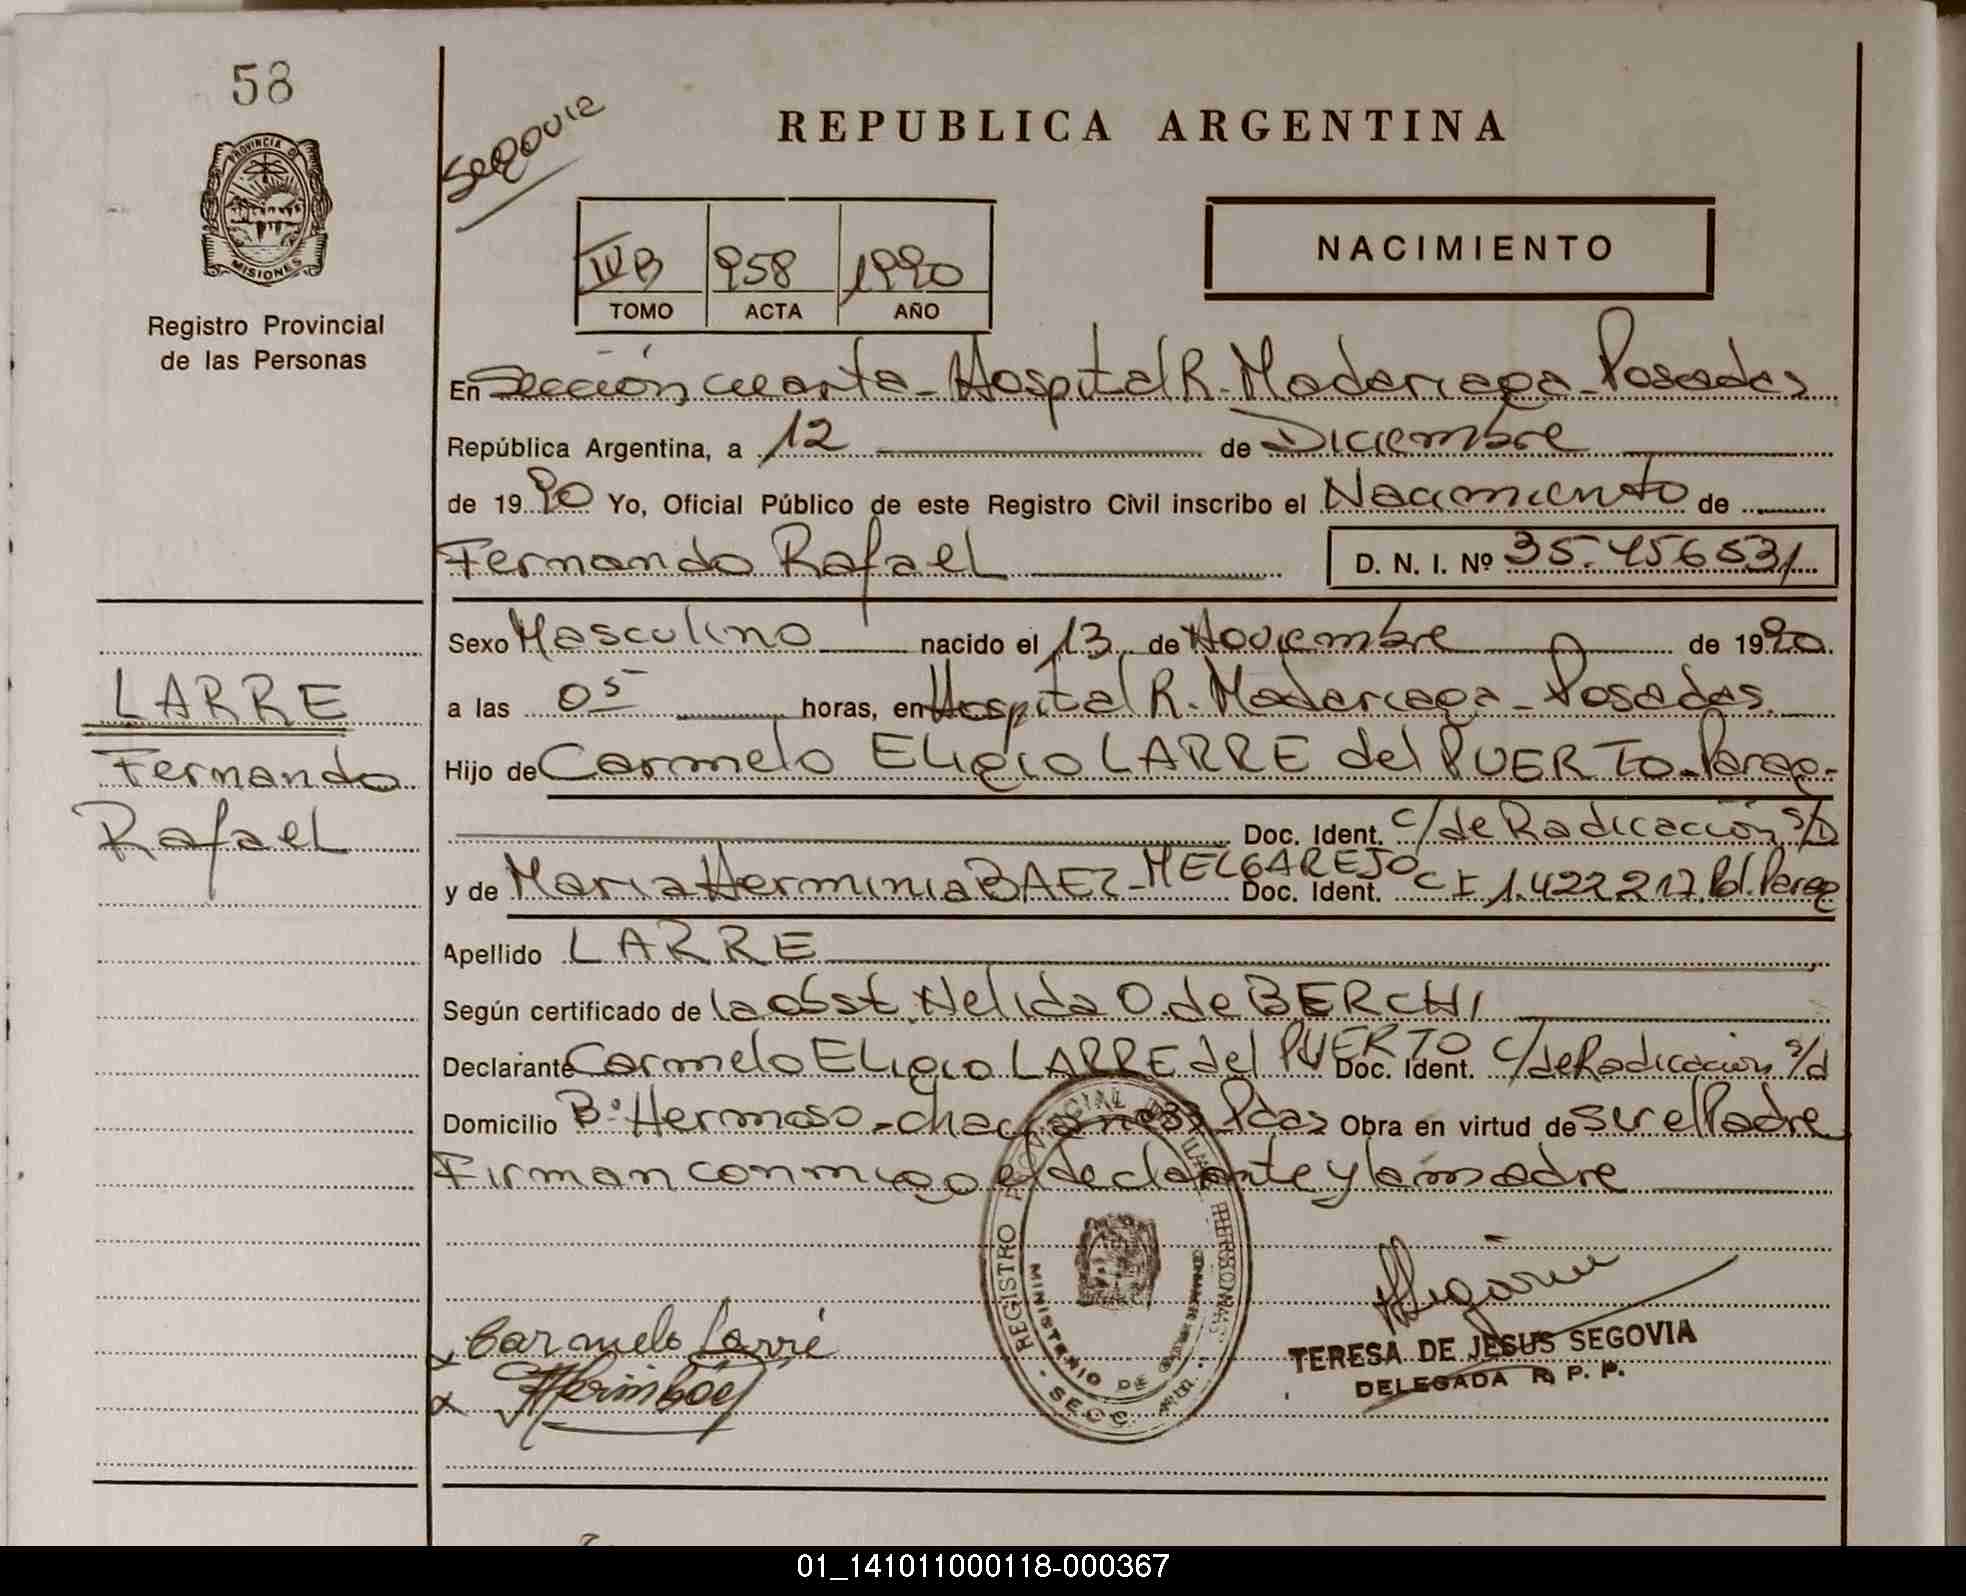 58
PROVINCIA DE
MISIONES
Registro Provincial
de las Personas
LARRE
Fernando
Rafael
Segovia
REPUBLICA ARGENTINA
IVB 958 1990
TOMO ACTA AÑO
NACIMIENTO
En Sección cuarta - Hospital R. Madariaga - Posadas
República Argentina, a 12 de Diciembre
de 1990 Yo, Oficial Público de este Registro Civil inscribo el Nacimiento de
Fernando Rafael D. N. I. Nº 35.456531
Sexo Masculino nacido el 13 de Noviembre de 1990
a las 05 horas, en Hospital R. Madariaga - Posadas
Hijo de Carmelo Eligio LARRE del PUERTO - Parag-
Doc. Ident. c/de Radicación s/D
y de Maria Herminia BAEZ - MELGAREJO Doc. Ident. C I 1.422217 Pol. Parag
Apellido LARRE
Según certificado de la obst. Nelida O. de BERCHI
Declarante Carmelo Eligio LARRE del PUERTO Doc. Ident. c/de Radicación s/d
Domicilio Bº Hermoso - chacra Pdas Obra en virtud de ser el Padre
Firman conmigo el declarante y la madre
REGISTRO PROVINCIAL DE LAS PERSONAS
MINISTERIO DE
SECC.
x Carmelo Larré
x
TERESA DE JESUS SEGOVIA
DELEGADA R. P. P.
01_141011000118-000367